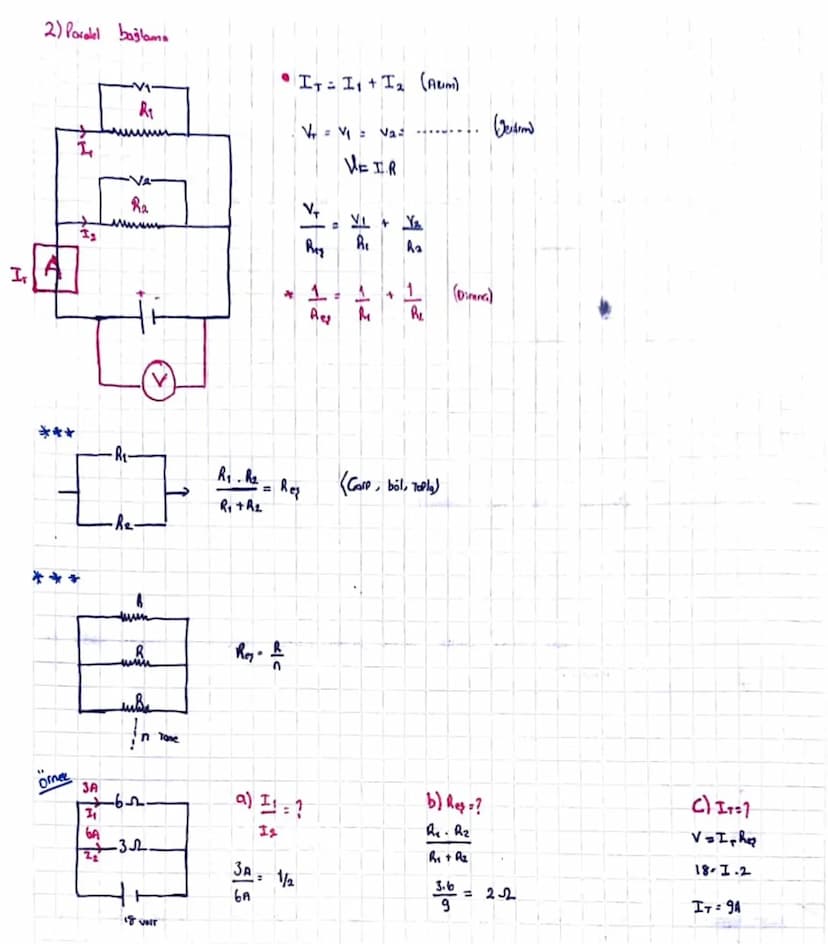 2) Paralel bağlama
V1
R1
I1
V2
R2
I2
IT
A
+ -
V
• IT = I1 + I2 (Akım)
VT = V1 = V2 = .......... (Gerilim)
V = I.R
VT/Reş = V1/R1 + V2/R2
* 1/Reş = 1/R1 + 1/R2 (Direnci)
***
R1
R2
R1 . R2 / R1 + R2 = Reş (Çarp, böl, Topla)
***
R
R
R
n Tane
Reş = R/n
Örnek
3A
6Ω
I1
6A
3Ω
I2
18 VOLT
a) I1/I2 = ?
3A/6A = 1/2
b) Reş = ?
R1 . R2 / R1 + R2
3.6/9 = 2Ω
C) IT = ?
V = IT Reş
18 = I . 2
IT = 9A